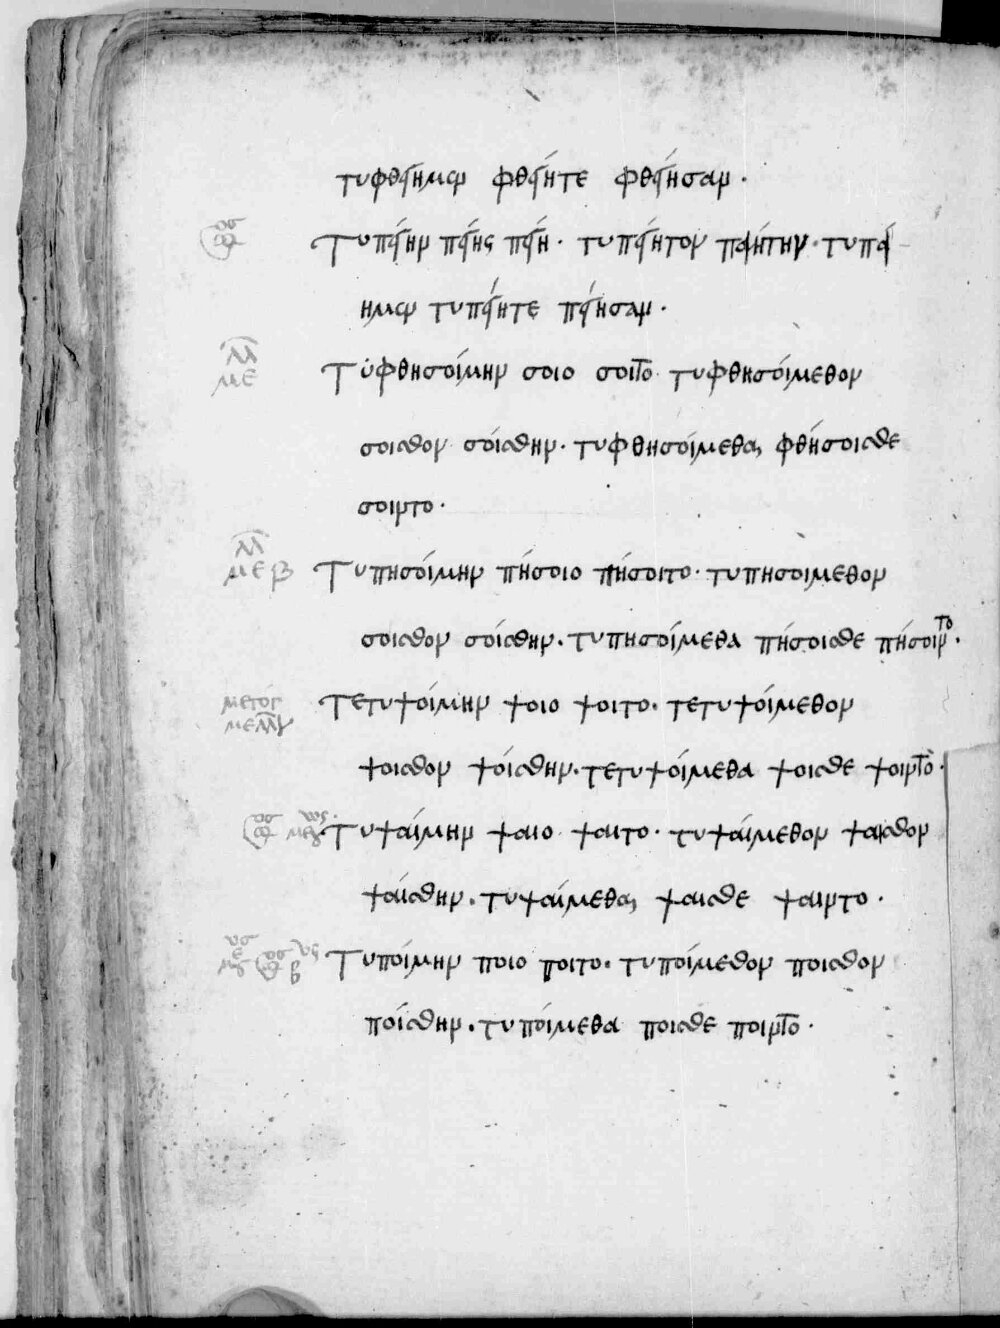 τυφθείημεν φθείητε φθείησαν.
Τυπείην πείης πείη. τυπείητον πειήτην. τυπεί
ημεν τυπείητε πείησαν.
μ̅
με
Τυφθησοίμην σοιο σοιτο τυφθησόιμεθον
σοισθον σόισθην. τυφθησόιμεθα, φθήσοισθε
σοιντο.
μ̅
με β
Τυπησόιμην πήσοιο πήσοιτο. τυπησοιμεθον
σοισθον σόισθην. τυπησόιμεθα πήσοισθε πήσοιντο.
Τετυψόιμην ψοιο ψοιτο. τετυψόιμεθον
ψοισθον ψόισθην. τετυψόιμεθα ψοισθε ψοιντο.
Τυψαίμην ψαιο ψαιτο. τυψαίμεθον ψαισθον
ψάισθην. τυψαίμεθα, ψαισθε ψαιντο.
Τυποίμην ποιο ποιτο. τυποίμεθον ποισθον
πόισθην. τυπόιμεθα ποισθε ποιντο.